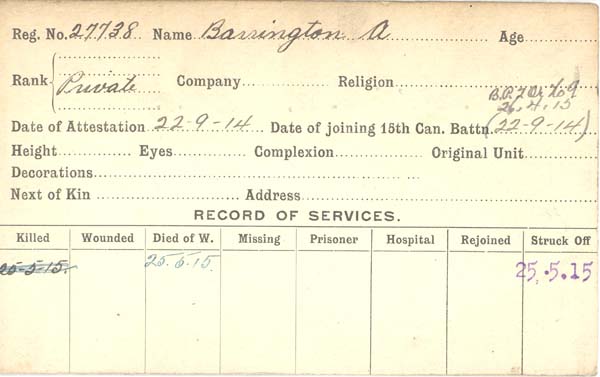 Reg. No. 27738 Name Barrington A Age
Rank Private Company Religion
26.4.15
Date of Attestation 22-9-14 Date of joining 15th Can. Battn (22-9-14)
Height Eyes Complexion Original Unit
Decorations
Next of Kin Address
RECORD OF SERVICES.
Killed Wounded Died of W. Missing Prisoner Hospital Rejoined Struck Off
25-5-15. 25.5.15. 25.5.15